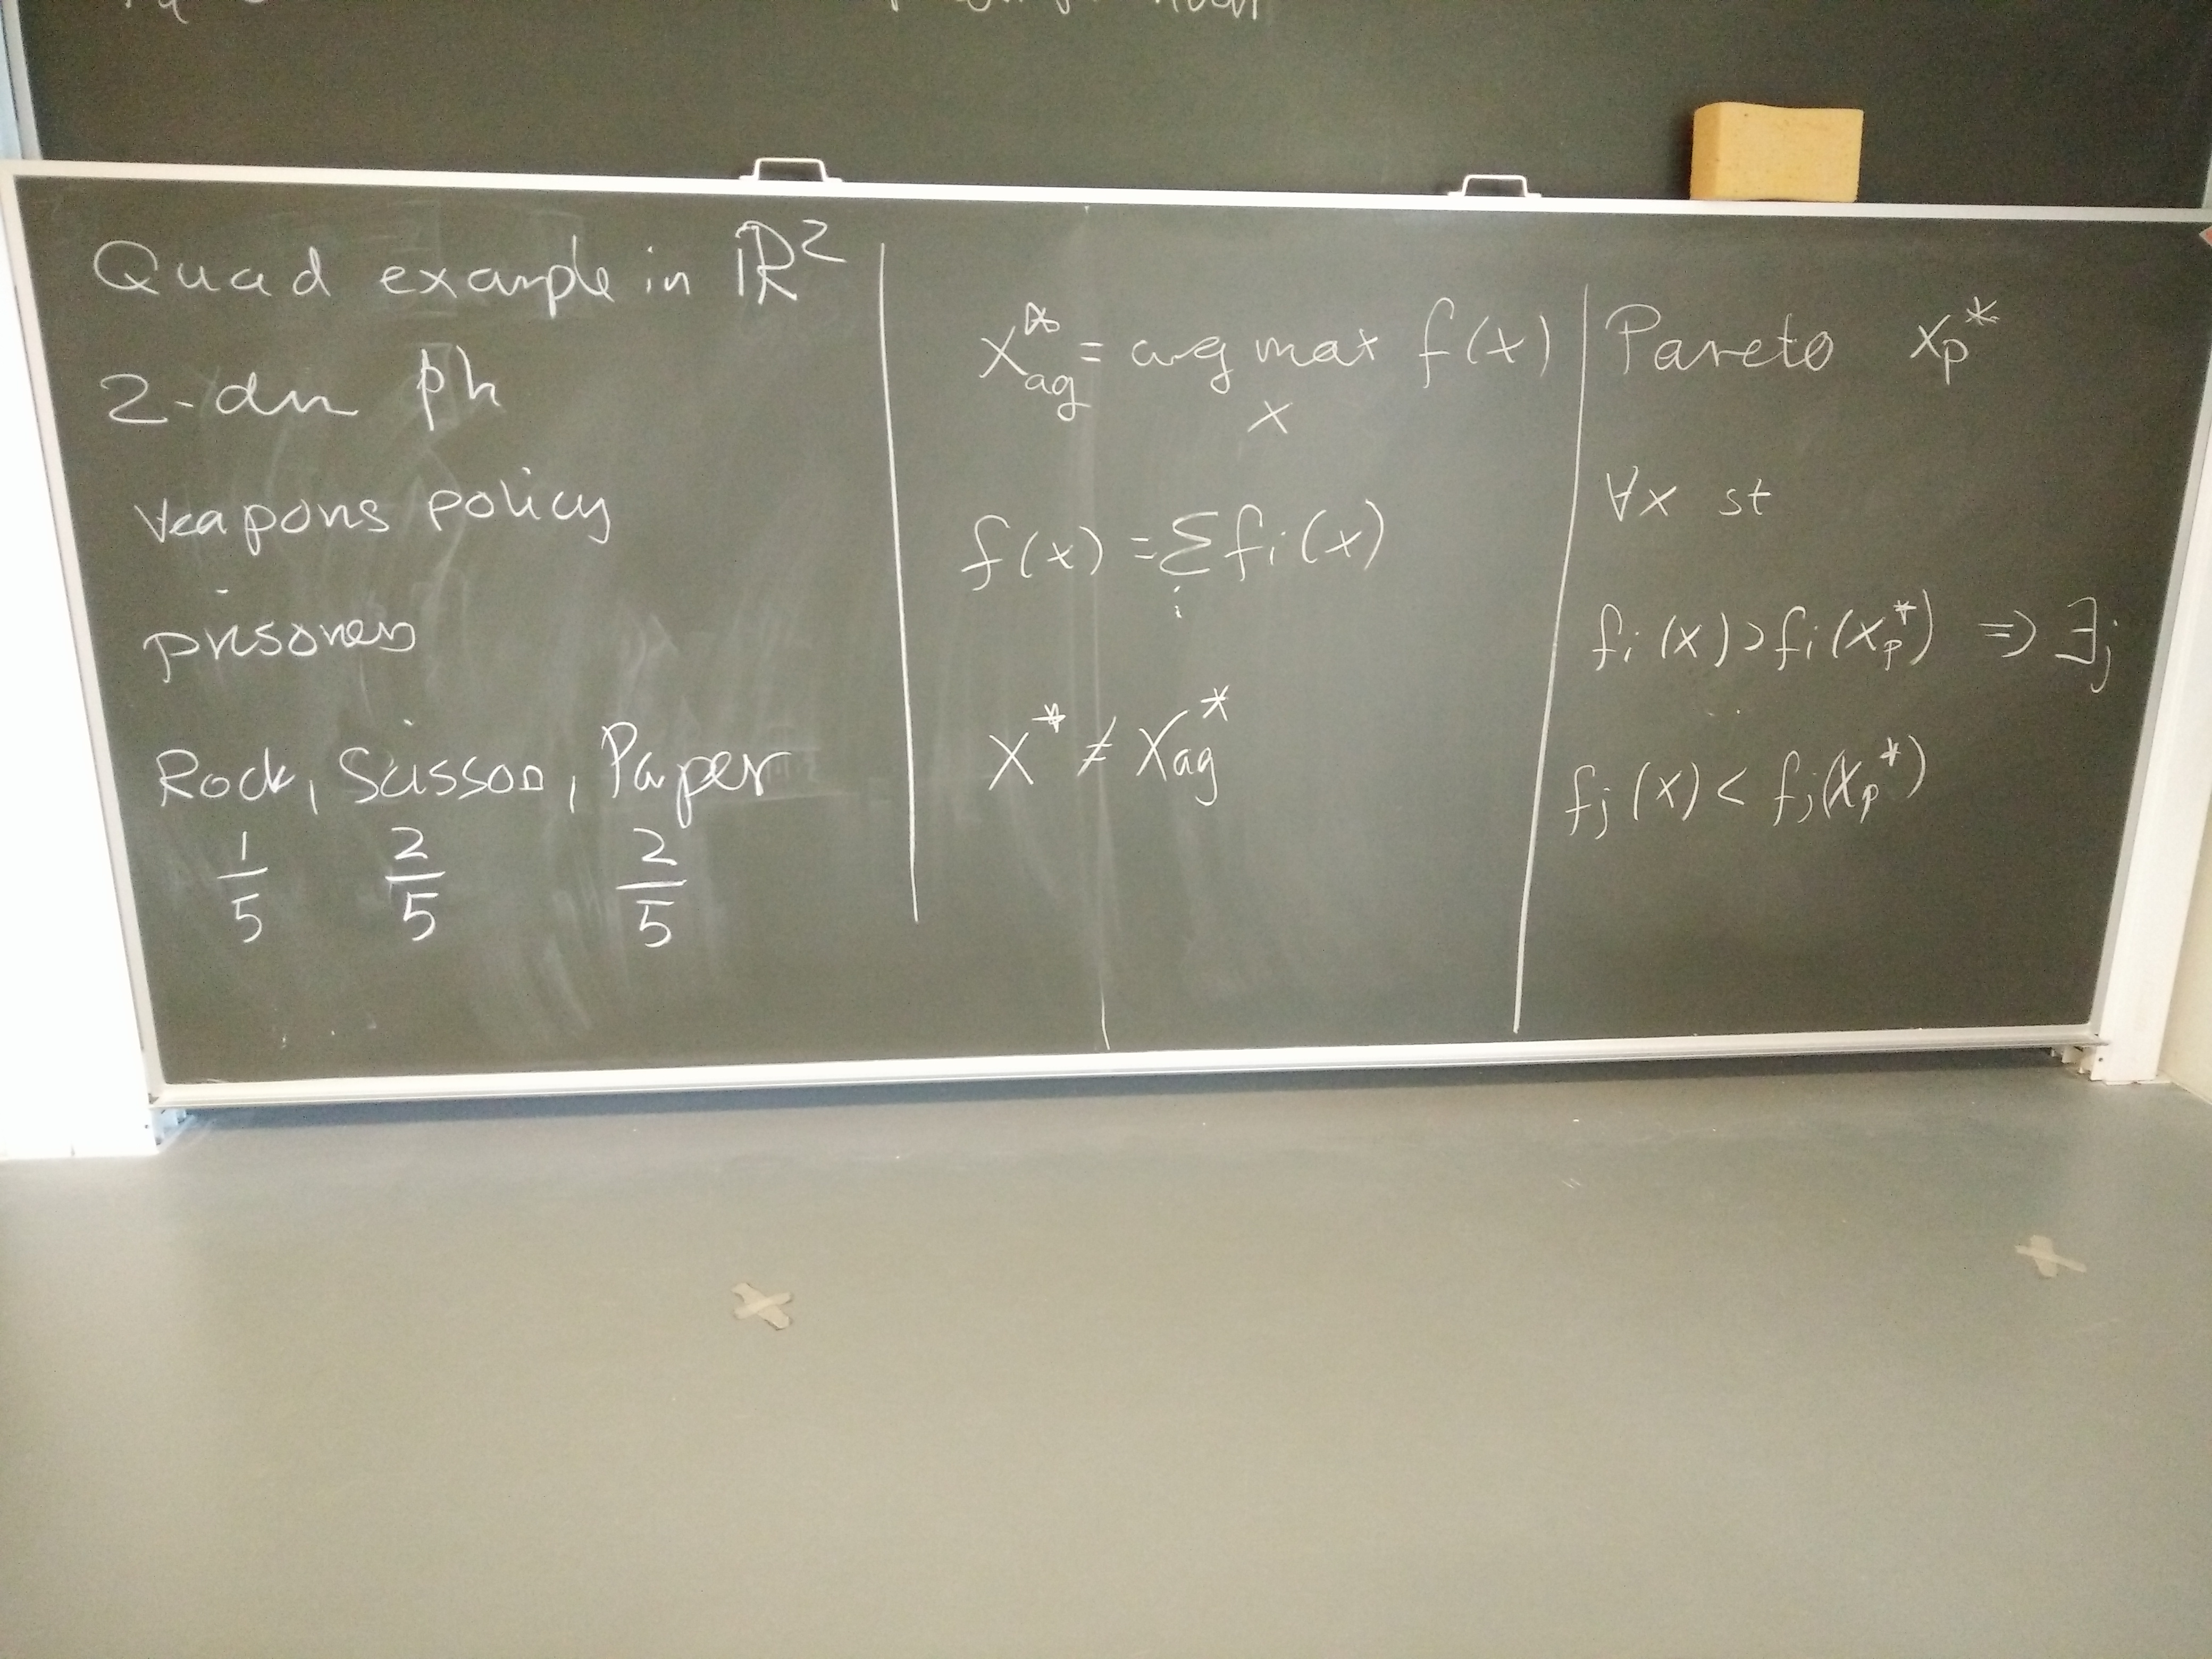 Quad example in ℝ²
2-dm ph
weapons policy
prisoners
Rock, Scissors, Paper
1/5 2/5 2/5
x*_ag = arg max_x f(x)
f(x) = Σ_i f_i(x)
x* ≠ x_ag*
Pareto x_p*
∀x st
f_i(x) > f_i(x_p*) ⇒ ∃j
f_j(x) < f_j(x_p*)